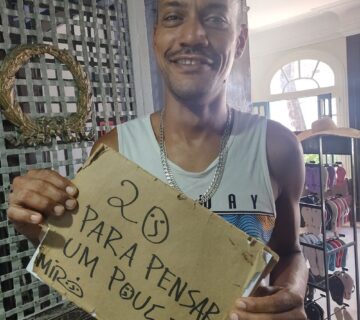 20
PARA PENSAR
UM POUC
MIRO
WAY